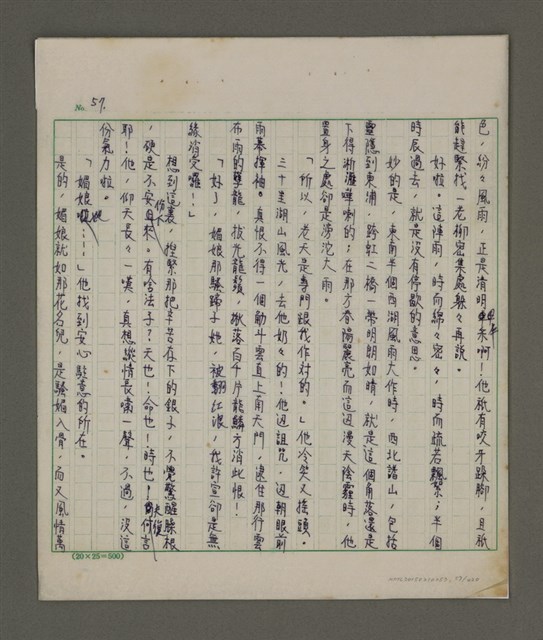 No. 57.
色，紛々風雨，正是清明時節未啊！他祇有咬牙跺腳，且祇
能趕緊找一老柳密集處躲々再說。
好啦。這陣雨，時而綿々密々，時而疏若飄絮；半個
時辰過去，就是沒有停歇的意思。
妙的是，東角半個西湖風雨大作時，西北諸山，包括
靈隱到東浦，跨虹二橋一帶明朗如晴，就是這個角落還是
下得淅瀝嘩喇的；在那方春陽麗亮而這邊漫天陰霾時，他
置身之處卻是滂沱大雨。
「所以，老天是專門跟我作對的。」他冷笑又搖頭。
三十里湖山風光，去他奶々的！他迎詛咒，迎朝眼前
雨幕揮袖。真恨不得一個觔斗雲直上南天門，逮住那行雲
布雨的孽龍，拔光龍鬚，揪落百千片龍鱗方消此恨！
「好了，媚娘那騷蹄子她，被翻紅浪，我許宣卻是無
緣消受囉！」
想到這裏，捏緊那把辛苦存下的銀子，不覺驚醒滕根
，硬是不安自在。有啥法子？天也！命也！時也！夫復何言
耶！他，仰天長々一嘆，真想縱情長嘯一聲，不過，沒這
份氣力啦。
「媚娘呢……」他找到安心駐意的所在。
是的，媚娘就如那花名兒，是騷媚入骨，而又風情萬
(20×25=500)